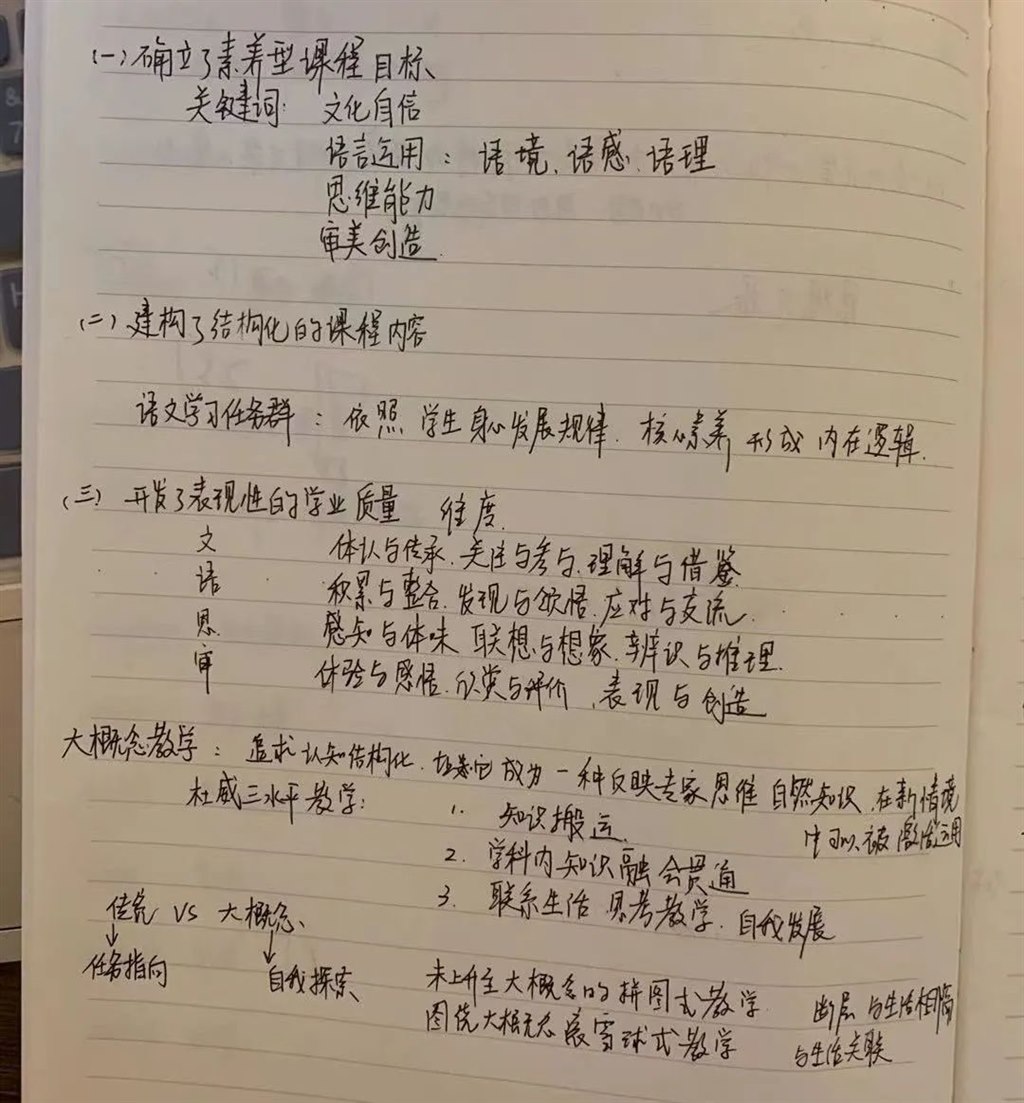 (一)确立了素养型课程目标、
关键词: 文化自信
语言运用: 语境、语感、语理
思维能力
审美创造.
(二)建构了结构化的课程内容
语文学习任务群: 依照 学生身心发展规律. 核心素养 形成 内在逻辑.
(三) 开发了表现性的学业质量 维度.
文 体认与传承、关注与参与、理解与借鉴
语 积累与整合、发现与领悟、应对与交流.
思 感知与体味 联想与想象、辨识与推理.
审 体验与感悟、欣赏与评价、表现与创造
大概念教学: 追求认知结构化. 成为一种反映专家思维 自然知识 在新情境
中可以被激活运用
杜威三水平教学: 1. 知识搬运.
2. 学科内知识融会贯通
3. 联系生活 思考教学. 自我发展
传统 VS 大概念、
↓ ↓
任务指向 自我探索
未上升至大概念的拼图式教学. 断层 与生活相隔
围绕大概念滚雪球式教学 与生活关联